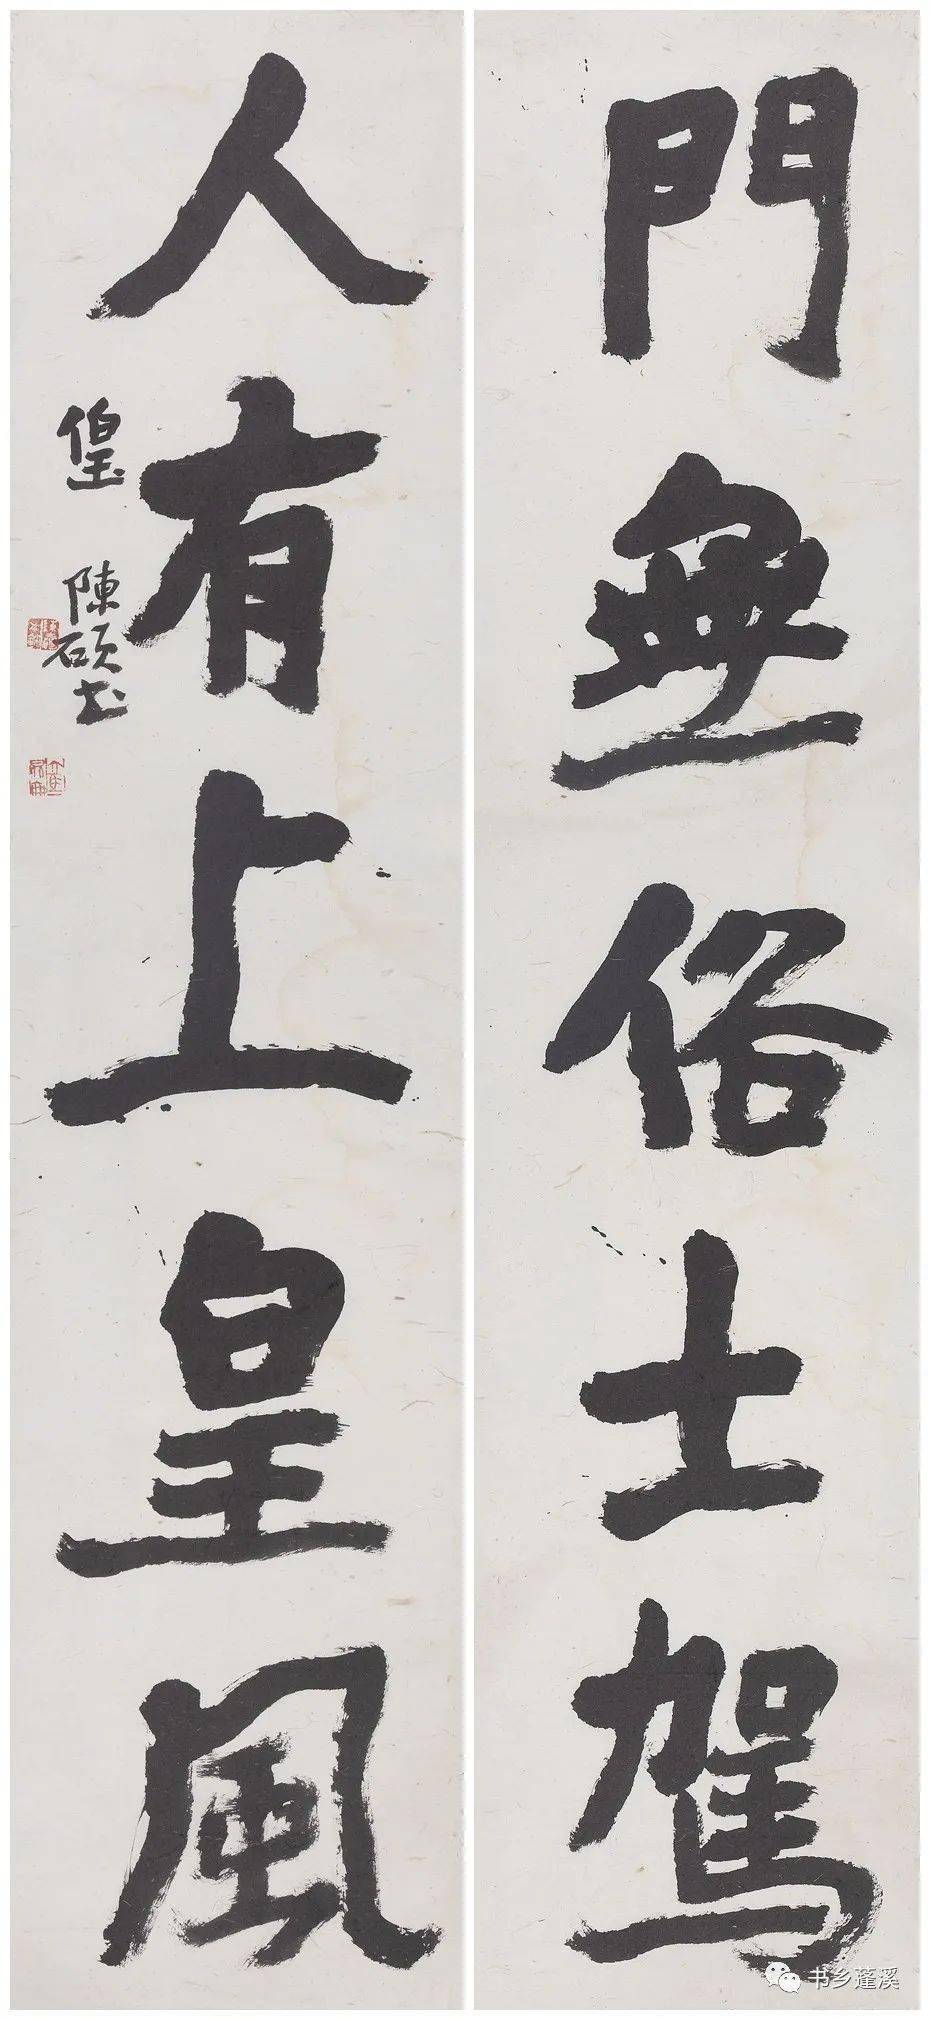 門無俗士駕
人有上皇風
陳碩書
书乡蓬溪